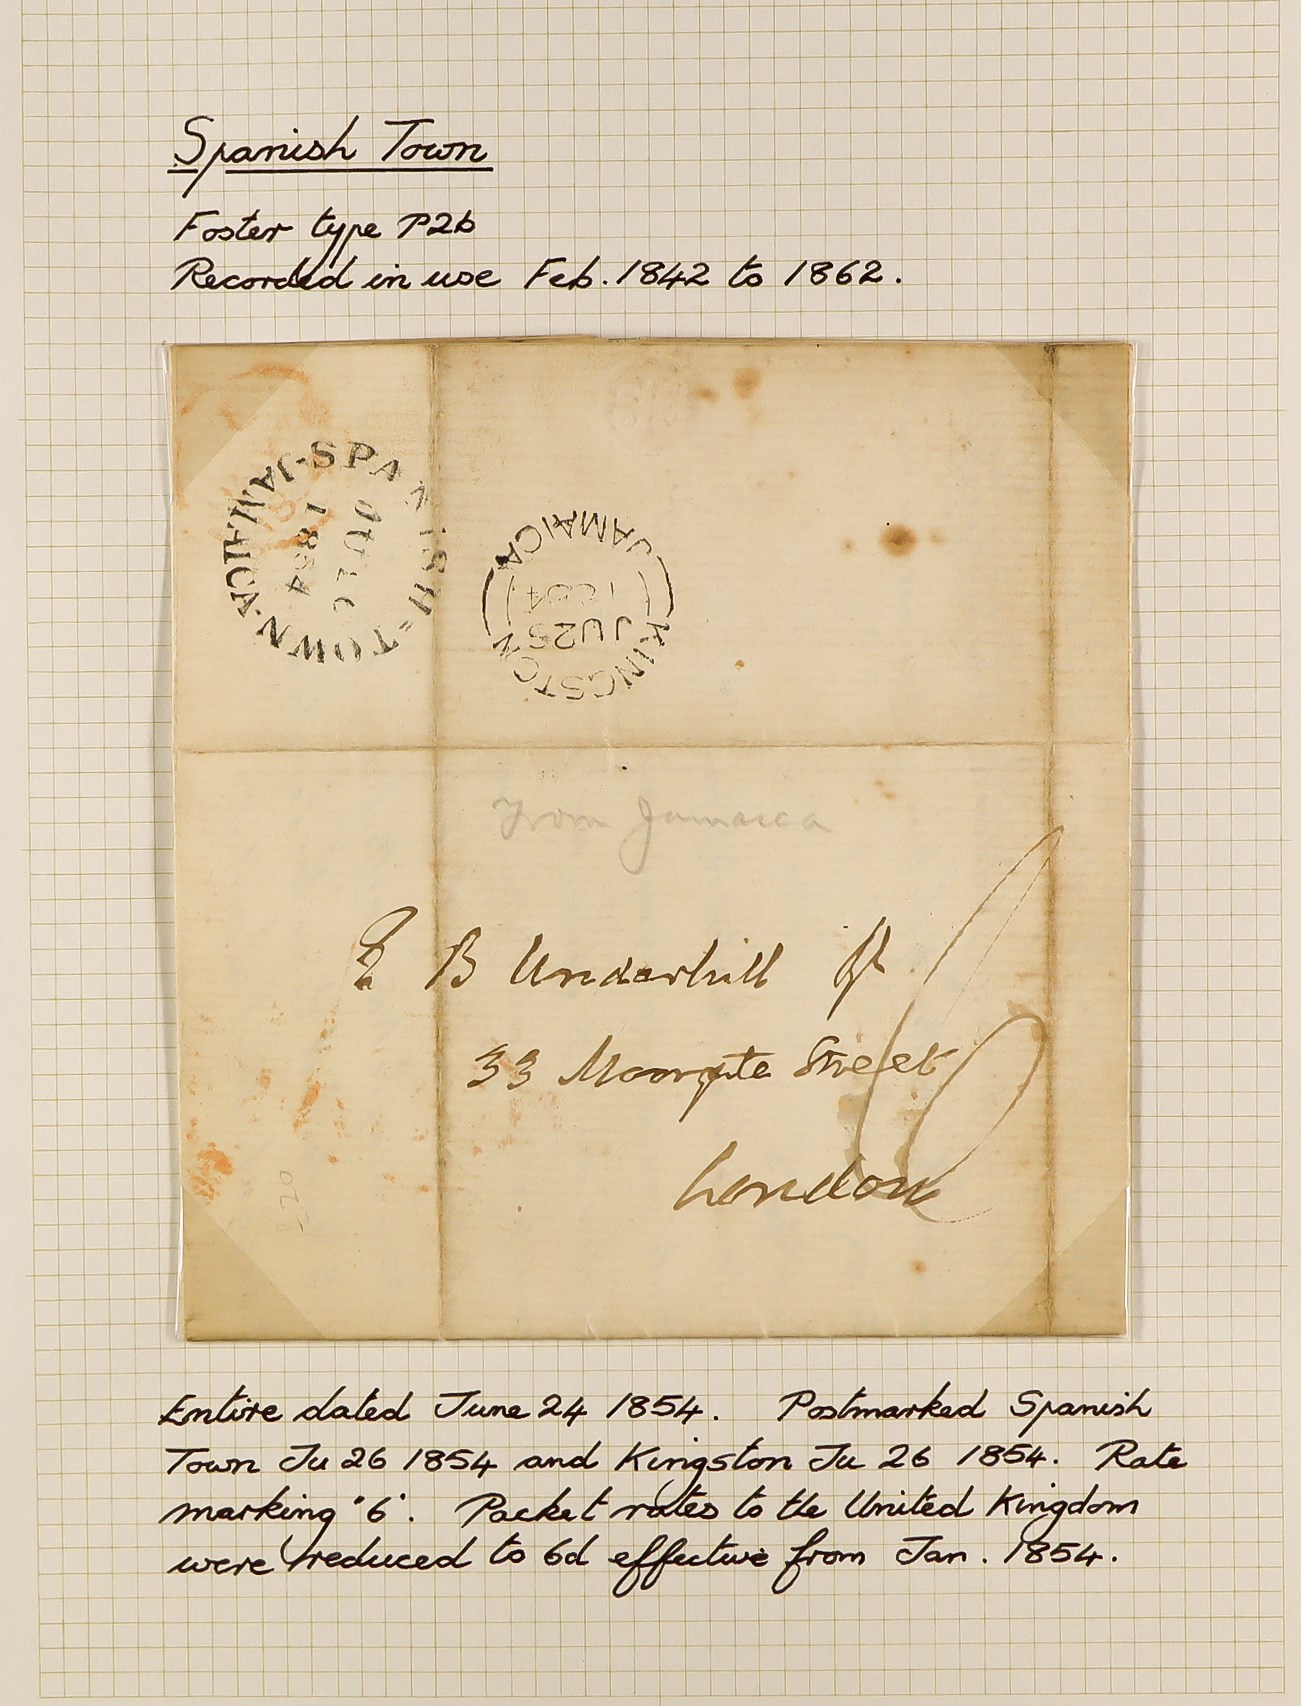 Spanish Town
Foster type P2b
Recorded in use Feb. 1842 to 1862.
SPANISH=TOWN·JAMAICA·
1854
KINGSTON
JAMAICA
JU 26
1854
From Jamaica
E B Underhill
33 Moorgate Street
London
6
£20
Entire dated June 24 1854. Postmarked Spanish
Town Ju 26 1854 and Kingston Ju 26 1854. Rate
marking '6'. Packet rates to the United Kingdom
were reduced to 6d effective from Jan. 1854.